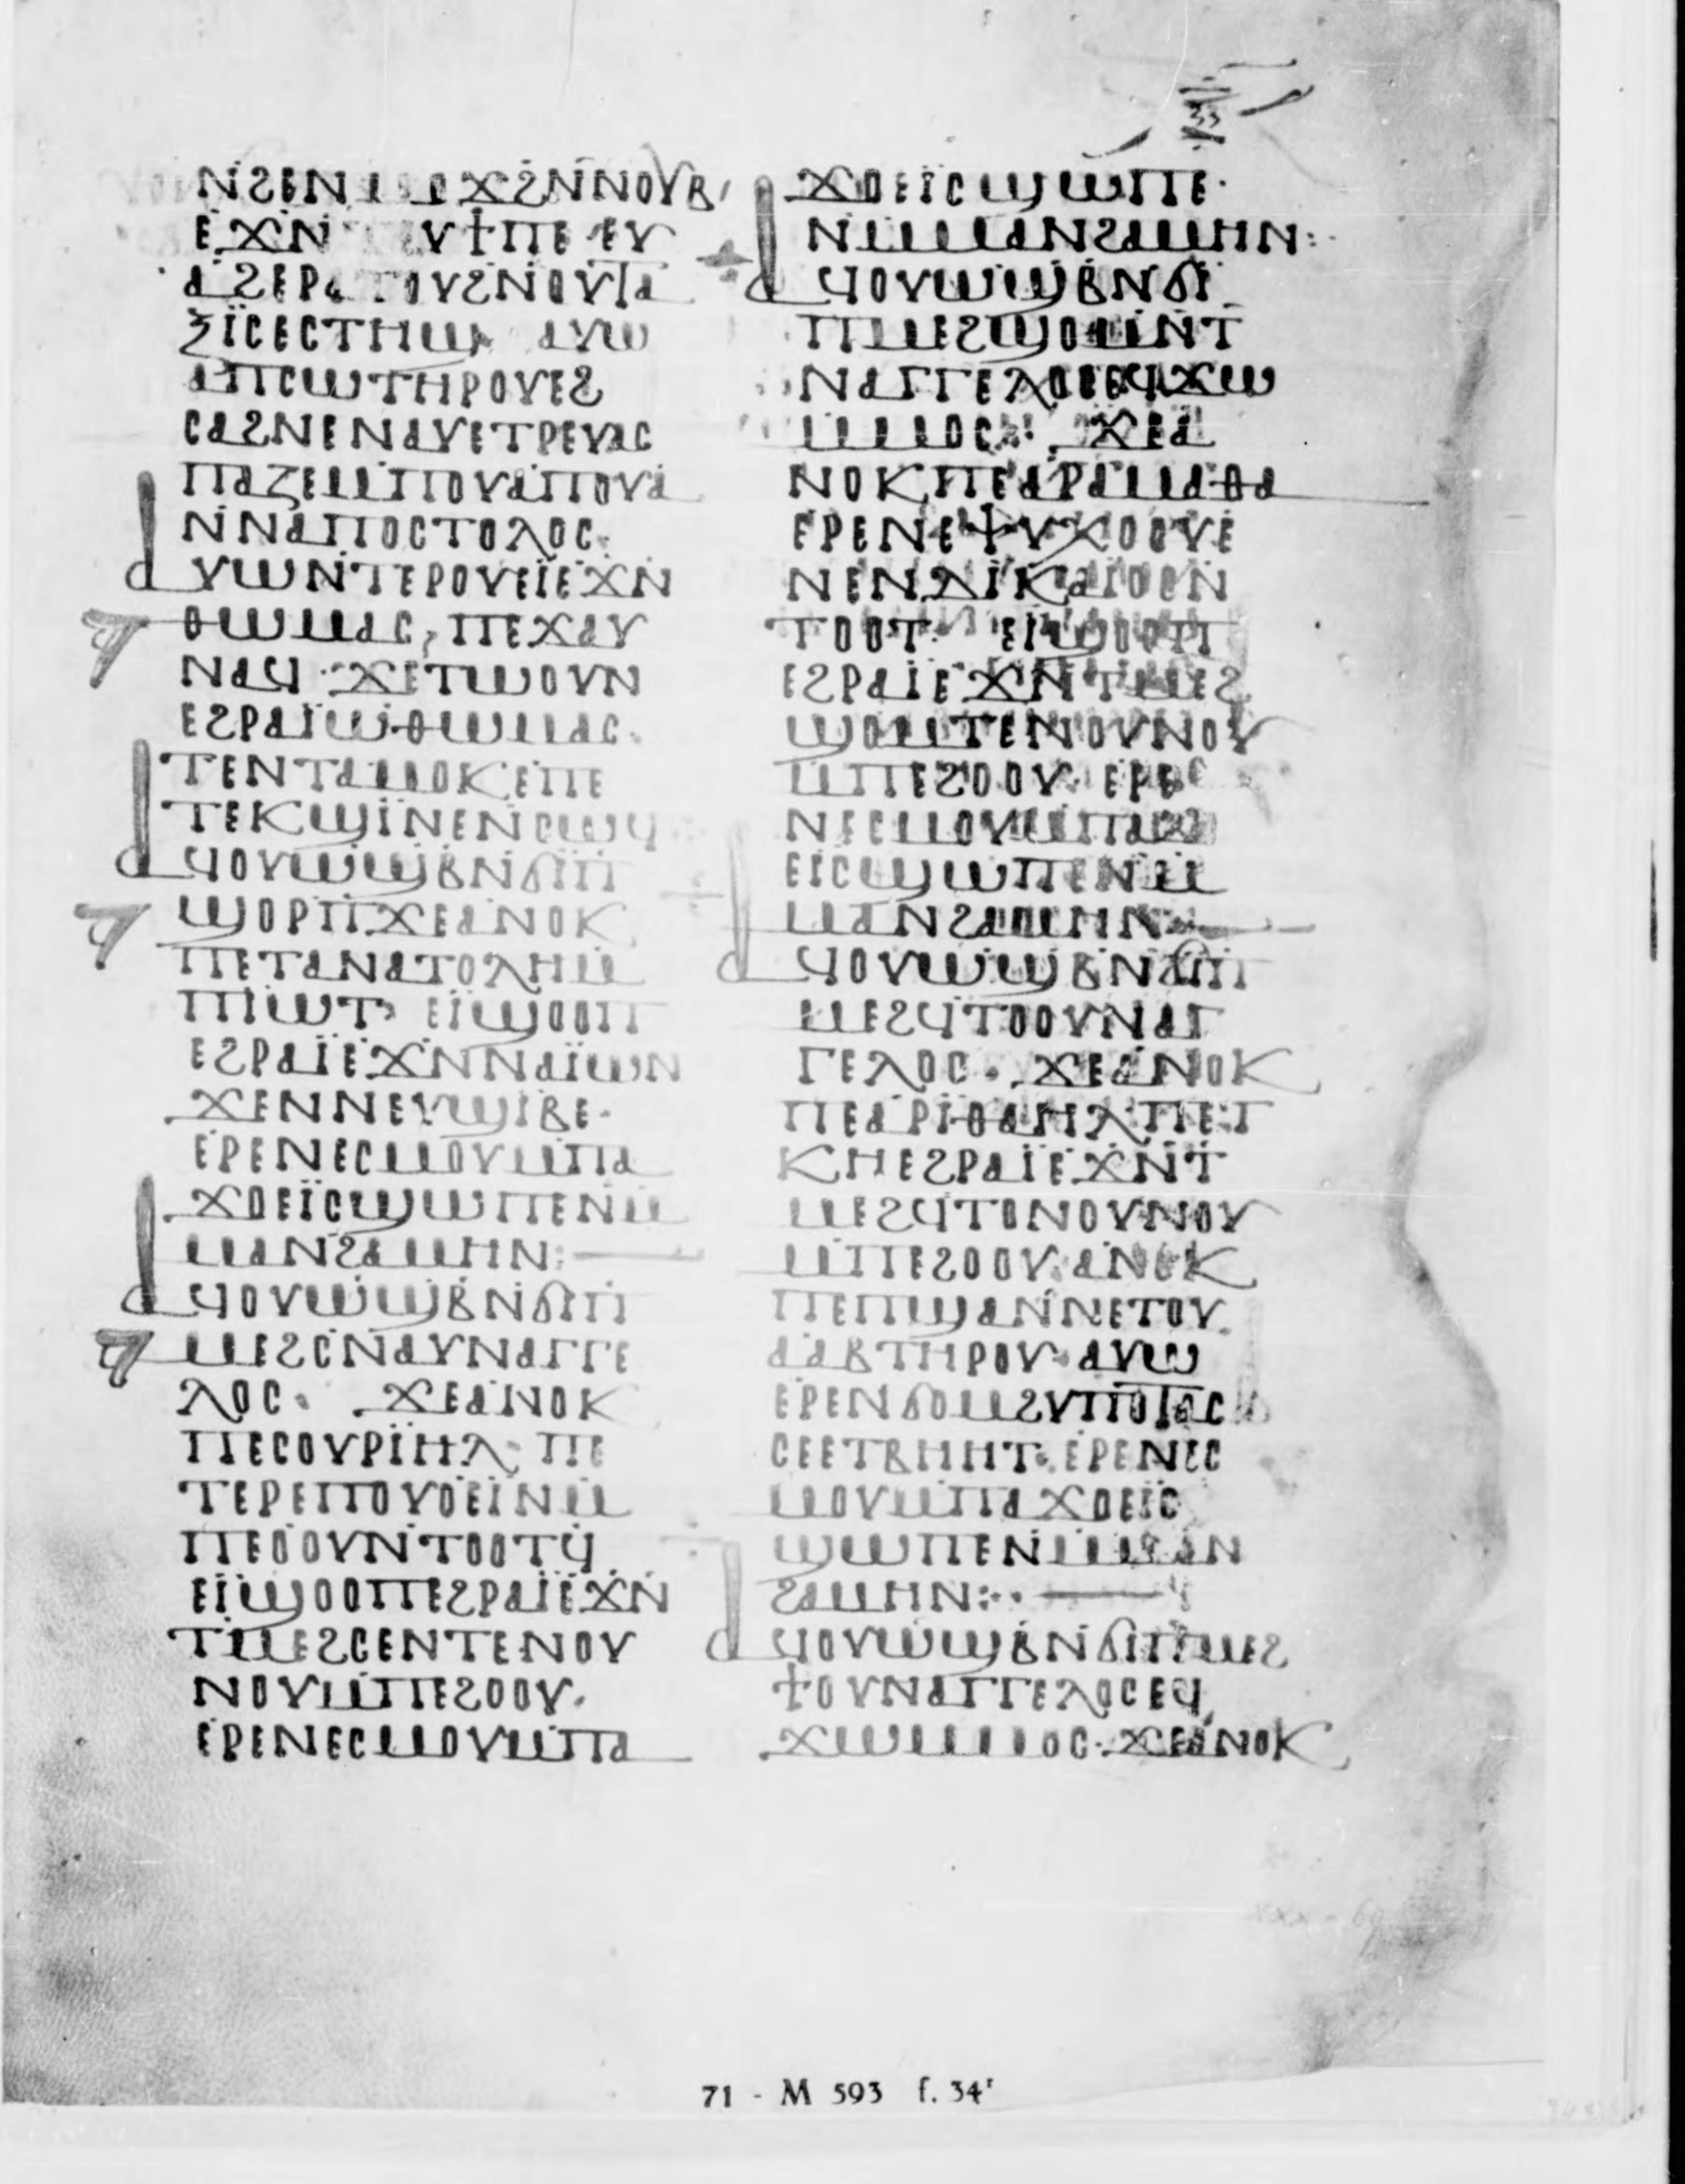 ⲛϩⲉⲛ ⲟϫϩⲛⲛⲟⲩⲃ
ⲉϫⲛ ⲩϯⲡⲉ ⲉⲩ
ⲁϩⲉⲣⲁⲧⲟⲩϩⲛⲟⲩⲧⲁ
ⲝⲓⲥⲉⲥⲧⲏϣ ⲁⲩⲱ
ⲁⲡⲥⲱⲧⲏⲣⲟⲩⲉϩ
ⲥⲁϩⲛⲉⲛⲁⲩⲉⲧⲣⲉⲩⲁⲥ
ⲡⲁⲍⲉⲙⲡⲟⲩⲁⲡⲟⲩⲁ
ⲛⲛⲁⲡⲟⲥⲧⲟⲗⲟⲥ·
ⲁⲩⲱⲛⲧⲉⲣⲟⲩⲉⲓⲉϫⲛ
ⲑⲱⲙⲁⲥ, ⲡⲉϫⲁⲩ
ⲛⲁϥ · ϫⲉⲧⲱⲟⲩⲛ
ⲉϩⲣⲁⲓⲱⲑⲱⲙⲁⲥ·
ⲧⲉⲛⲧⲁⲙⲟⲕⲉⲡⲉ
ⲧⲉⲕϣⲓⲛⲉⲛⲥⲱϥ
ⲁϥⲟⲩⲱϣⲃⲛϭⲓⲡ
ϣⲟⲣⲡϫⲉⲁⲛⲟⲕ
ⲡⲉⲧⲁⲛⲁⲧⲟⲗⲏⲙ
ⲡⲓⲱⲧ· ⲉⲓϣⲟⲟⲡ
ⲉϩⲣⲁⲓⲉϫⲛⲛⲁⲓⲱⲛ
ϫⲉⲛⲛⲉⲩϣⲓⲃⲉ·
ⲉⲣⲉⲛⲉⲥⲙⲟⲩⲙⲡⲁ
ϫⲟⲉⲓⲥϣⲱⲡⲉⲛⲙ
ⲙⲁⲛϩⲁⲙⲏⲛ:
ⲁϥⲟⲩⲱϣⲃⲛϭⲓⲡ
ⲙⲉϩⲥⲛⲁⲩⲛⲁⲅⲅⲉ
ⲗⲟⲥ· ϫⲉⲁⲛⲟⲕ
ⲡⲉⲥⲟⲩⲣⲓⲏⲗ· ⲡⲉ
ⲧⲉⲣⲉⲡⲟⲩⲟⲉⲓⲛⲙ
ⲡⲉⲟⲟⲩⲛⲧⲟⲟⲧϥ
ⲉⲓϣⲟⲟⲡⲉϩⲣⲁⲓⲉϫⲛ
ⲧⲙⲉϩⲥⲉⲛⲧⲉⲛⲟⲩ
ⲛⲟⲩⲙⲡⲉϩⲟⲟⲩ·
ⲉⲣⲉⲛⲉⲥⲙⲟⲩⲙⲡⲁ
33
ϫⲟⲉⲓⲥϣⲱⲡⲉ·
ⲛⲙⲙⲁⲛϩⲁⲙⲏⲛ:
ⲁϥⲟⲩⲱϣⲃⲛϭⲓ
ⲡⲙⲉϩϣⲟⲙⲛⲧ
ⲛⲁⲅⲅⲉⲗⲟⲥⲉϥϫⲱ
ⲙⲙⲟⲥ· ϫⲉⲁ
ⲛⲟⲕⲡⲉⲁⲣⲁⲙⲁⲑⲁ
ⲉⲣⲉⲛⲉⲯⲩⲭⲟⲟⲩⲉ
ⲛⲉⲛⲇⲓⲕⲁⲓⲟⲥⲛ
ⲧⲟⲟⲧ· ⲉⲓϣⲟⲟⲡ
ⲉϩⲣⲁⲓⲉϫⲛⲧⲙⲉϩ
ϣⲟⲙⲧⲉⲛⲟⲩⲛⲟⲩ
ⲙⲡⲉϩⲟⲟⲩ· ⲉⲣⲉ
ⲛⲉⲥⲙⲟⲩⲙⲡⲁϫⲟ
ⲉⲓⲥϣⲱⲡⲉⲛⲙ
ⲙⲁⲛϩⲁⲙⲏⲛ
ⲁϥⲟⲩⲱϣⲃⲛϭⲓⲡ
ⲙⲉϩϥⲧⲟⲟⲩⲛⲁⲅ
ⲅⲉⲗⲟⲥ· ϫⲉⲁⲛⲟⲕ
ⲡⲉⲁⲣⲓⲑⲁⲏⲗⲡⲉⲧ
ⲕⲏⲉϩⲣⲁⲓⲉϫⲛⲧ
ⲙⲉϩϥⲧⲟⲛⲟⲩⲛⲟⲩ
ⲙⲡⲉϩⲟⲟⲩ· ⲁⲛⲟⲕ
ⲡⲉⲡϣⲁⲛⲛⲉⲧⲟⲩ
ⲁⲁⲃⲧⲏⲣⲟⲩ· ⲁⲩⲱ
ⲉⲣⲉⲛϭⲟⲙϩⲩⲡⲟⲧⲁⲥ
ⲥⲉⲉⲧⲃⲏⲏⲧ· ⲉⲣⲉⲛⲉⲥ
ⲙⲟⲩⲙⲡⲁϫⲟⲉⲓⲥ
ϣⲱⲡⲉⲛⲙⲙⲁⲛ
ϩⲁⲙⲏⲛ:·
ⲁϥⲟⲩⲱϣⲃⲛϭⲓⲡⲙⲉϩ
ϯⲟⲩⲛⲁⲅⲅⲉⲗⲟⲥⲉϥ
ϫⲱⲙⲙⲟⲥ· ϫⲉⲁⲛⲟⲕ
71 - M 593 f. 34ʳ